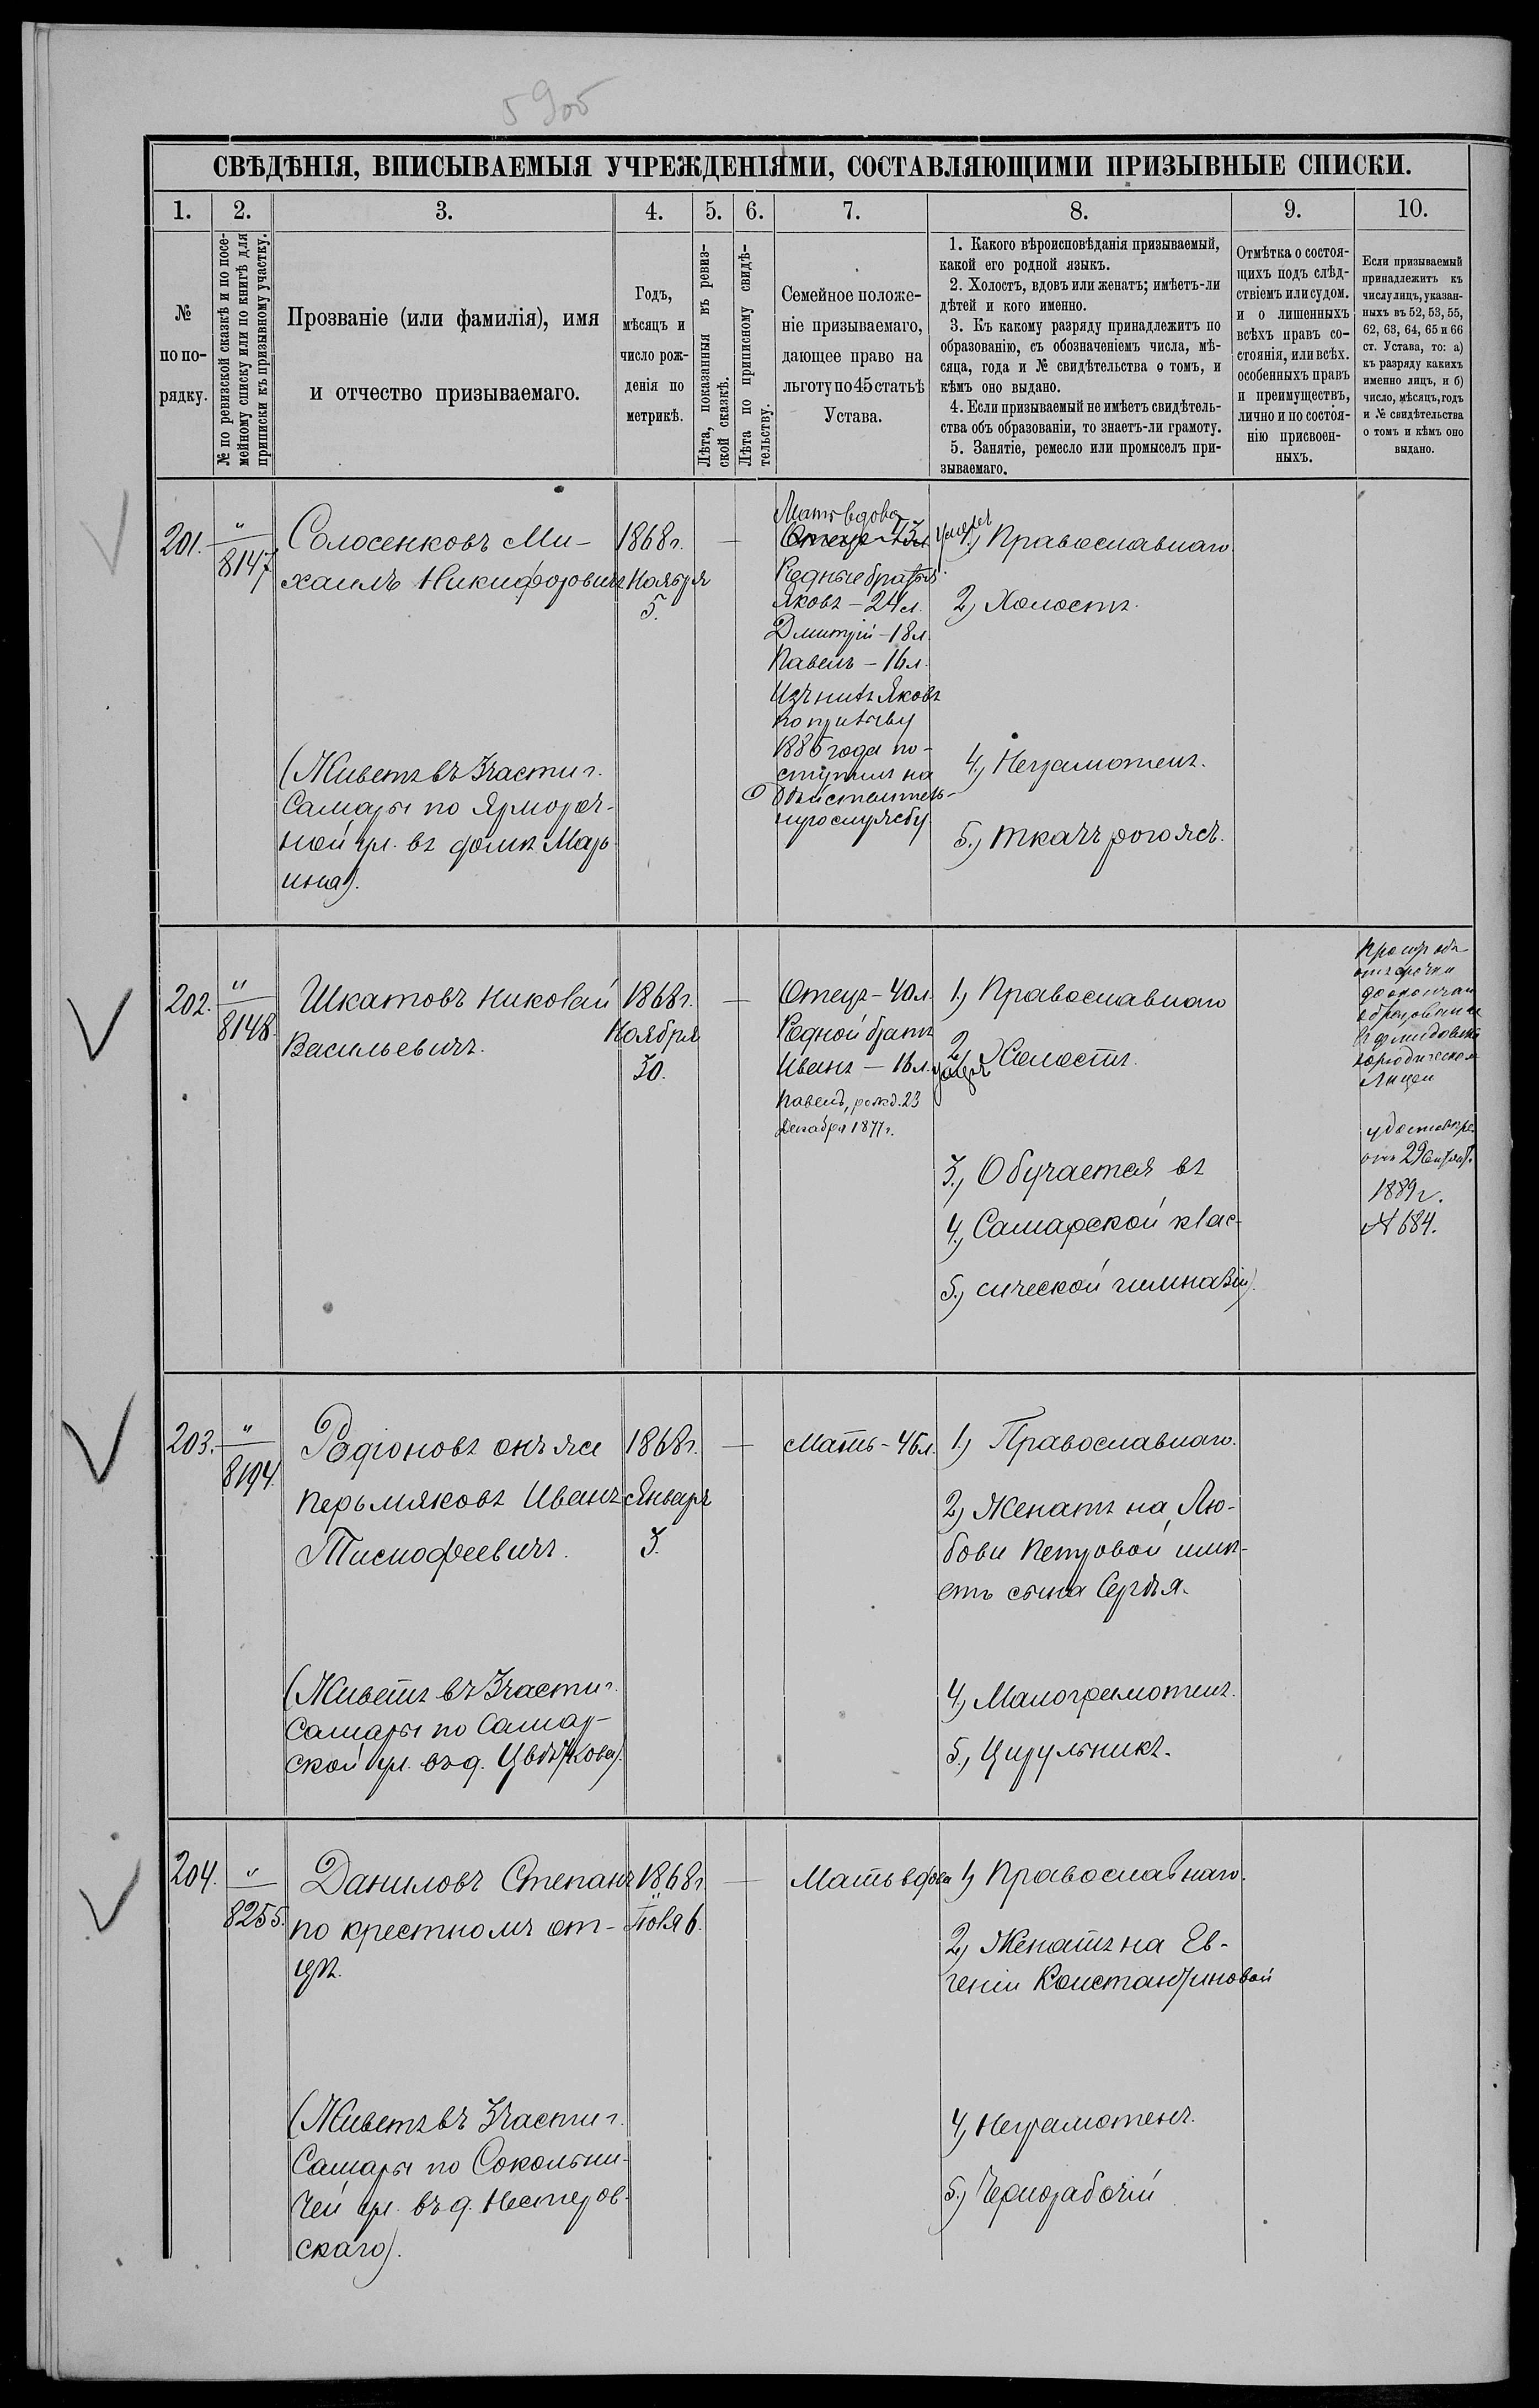 5905
СВѢДѢНІЯ, ВПИСЫВАЕМЫЯ УЧРЕЖДЕНІЯМИ, СОСТАВЛЯЮЩИМИ ПРИЗЫВНЫЕ СПИСКИ.
1.
2.
3.
4.
5.
6.
7.
8.
9.
10.
№
по по-
рядку.
№ по ревизской сказкѣ и по посе-
мейному списку или по книгѣ для
приписки къ призывному участку.
Прозваніе (или фамилія), имя
и отчество призываемаго.
Годъ,
мѣсяцъ и
число рож-
денія по
метрикѣ.
Лѣта, показанныя въ ревиз-
ской сказкѣ.
Лѣта по приписному свидѣ-
тельству.
Семейное положе-
ніе призываемаго,
дающее право на
льготу по 45 статьѣ
Устава.
1. Какого вѣроисповѣданія призываемый,
какой его родной языкъ.
2. Холостъ, вдовъ или женатъ; имѣетъ-ли
дѣтей и кого именно.
3. Къ какому разряду принадлежитъ по
образованію, съ обозначеніемъ числа, мѣ-
сяца, года и № свидѣтельства о томъ, и
кѣмъ оно выдано.
4. Если призываемый не имѣетъ свидѣтель-
ства объ образованіи, то знаетъ-ли грамоту.
5. Занятіе, ремесло или промыселъ при-
зываемаго.
Отмѣтка о состоя-
щихъ подъ слѣд-
ствіемъ или судом.
и о лишенныхъ
всѣхъ правъ со-
стоянія, или всѣх.
особенныхъ правъ
и преимуществъ,
лично и по состоя-
нію присвоен-
ныхъ.
Если призываемый
принадлежитъ къ
числу лицъ, указан-
ныхъ въ 52, 53, 55,
62, 63, 64, 65 и 66
ст. Устава, то: а)
къ разряду какихъ
именно лицъ, и б)
число, мѣсяцъ, годъ
и № свидѣтельства
о томъ и кѣмъ оно
выдано.
201.
"
8147
Солосенковъ Ми-
хаилъ Никифоровичъ
(Живетъ въ 3 части г.
Самары по Ярмороч-
ной ул. въ домѣ Марь
ина).
1868 г.
Ноября
5.
—
Мать вдова
Отецъ
умеръ
Родные братья
Яковъ — 24 л.
Дмитрій — 18 л.
Павелъ — 16 л.
Изъ нихъ Яковъ
по призыву
1885 года по-
ступилъ на
дѣйствитель-
ную службу
1.) Православнаго
2.) Холостъ.
4.) Неграмотенъ.
5.) ткачъ рогожъ.
202.
"
8148.
Шкатовъ Николай
Васильевичъ.
1868 г.
Ноября
30.
—
Отецъ — 40 л.
Родной братъ
Иванъ — 16 л.
умеръ
Павелъ, рожд. 23
Декабря 1877 г.
1.) Православнаго
2.) Холостъ.
3.) Обучается въ
4.) Самарской клас-
5.) сической гимназіи).
отсрочки
до окончан
образованія
Демидовск
юридическом
Лицеи
удостовѣре.
отъ 29 Сентяб.
1889 г.
№ 684.
203.
"
8194.
Родіоновъ онъ же
Перьмяковъ Иванъ
Тимофеевичъ.
(Живетъ въ 3 части г.
Самары по Самар-
ской ул. въ д. Цвѣткова).
1868 г.
Января
3.
—
Мать — 46 л.
1.) Православнаго.
2.) Женатъ на Лю-
бови Петровой имѣ-
етъ сына Сергѣя.
4.) Малограмотенъ.
5.) Цирульникъ.
204.
"
8255.
Даниловъ Степанъ
по крестномъ от-
цѣ.
(Живетъ въ 3 части г.
Самары по Сокольни-
чей ул. въ д. Нестеров-
скаго).
1868 г.
—
Мать вдова
1.) Православнаго.
2.) Женатъ на Ев-
геніи Константиновой
4.) Неграмотенъ.
5.) Чернорабочій